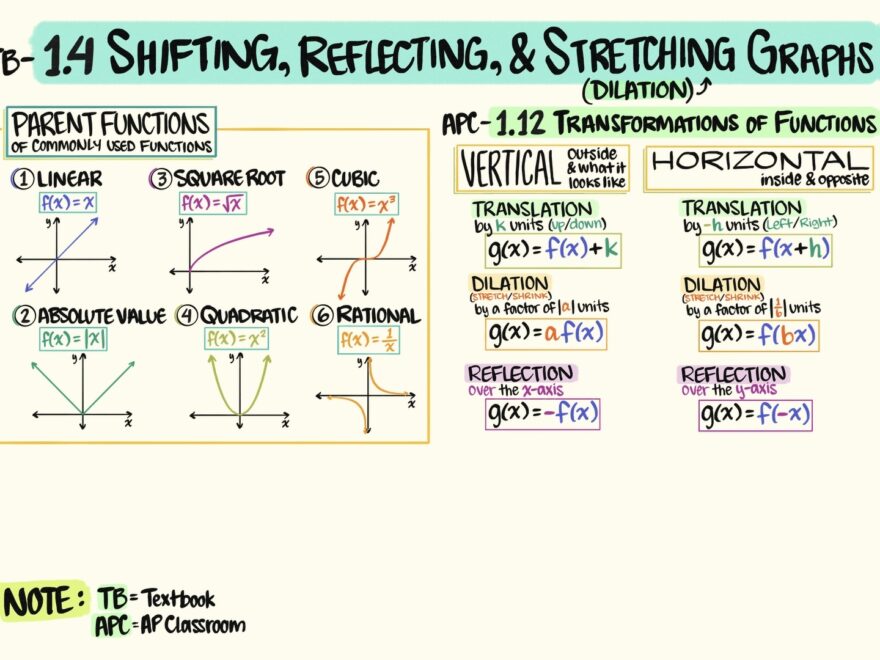 TB- 1.4 SHIFTING, REFLECTING, & STRETCHING GRAPHS
(DILATION)
PARENT FUNCTIONS
OF COMMONLY USED FUNCTIONS
① LINEAR
f(x)=x
y
x
③ SQUARE ROOT
f(x)=√x
y
x
⑤ CUBIC
f(x)=x³
y
x
② ABSOLUTE VALUE
f(x)=|x|
y
x
④ QUADRATIC
f(x)=x²
y
x
⑥ RATIONAL
f(x)=1/x
y
x
APC- 1.12 TRANSFORMATIONS OF FUNCTIONS
VERTICAL
outside
& what it
looks like
TRANSLATION
by k units (up/down)
g(x)=f(x)+k
DILATION
(STRETCH/SHRINK)
by a factor of |a| units
g(x)=af(x)
REFLECTION
over the x-axis
g(x)=-f(x)
HORIZONTAL
inside & opposite
TRANSLATION
by -h units (Left/Right)
g(x)=f(x+h)
DILATION
(STRETCH/SHRINK)
by a factor of |1/b| units
g(x)=f(bx)
REFLECTION
over the y-axis
g(x)=f(-x)
NOTE: TB = Textbook
APC = AP Classroom